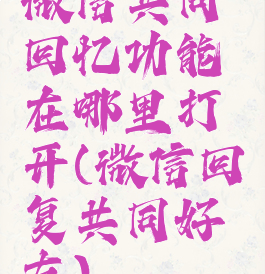 微信共同
回忆功能
在哪里打
开(微信回
复共同好
友)